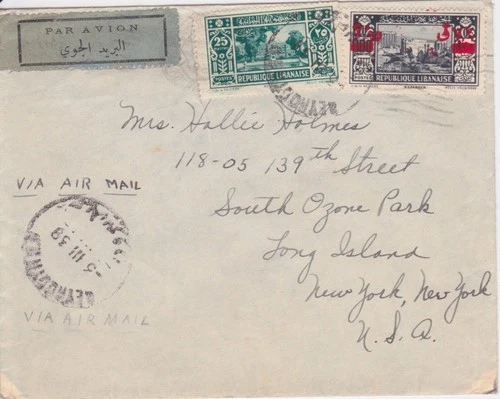 PAR AVION
البريد الجوي
25 ٢٥
POSTES
REPUBLIQUE LIBANAISE
REPUBLIQUE LIBANAISE
BEYROUTH
Mrs. Hallie Holmes
118-05 139th Street
South Ozone Park
Long Island
New York, New York
U.S.A.
VIA AIR MAIL
-5 III 38
BEYROUTH
VIA AIR MAIL